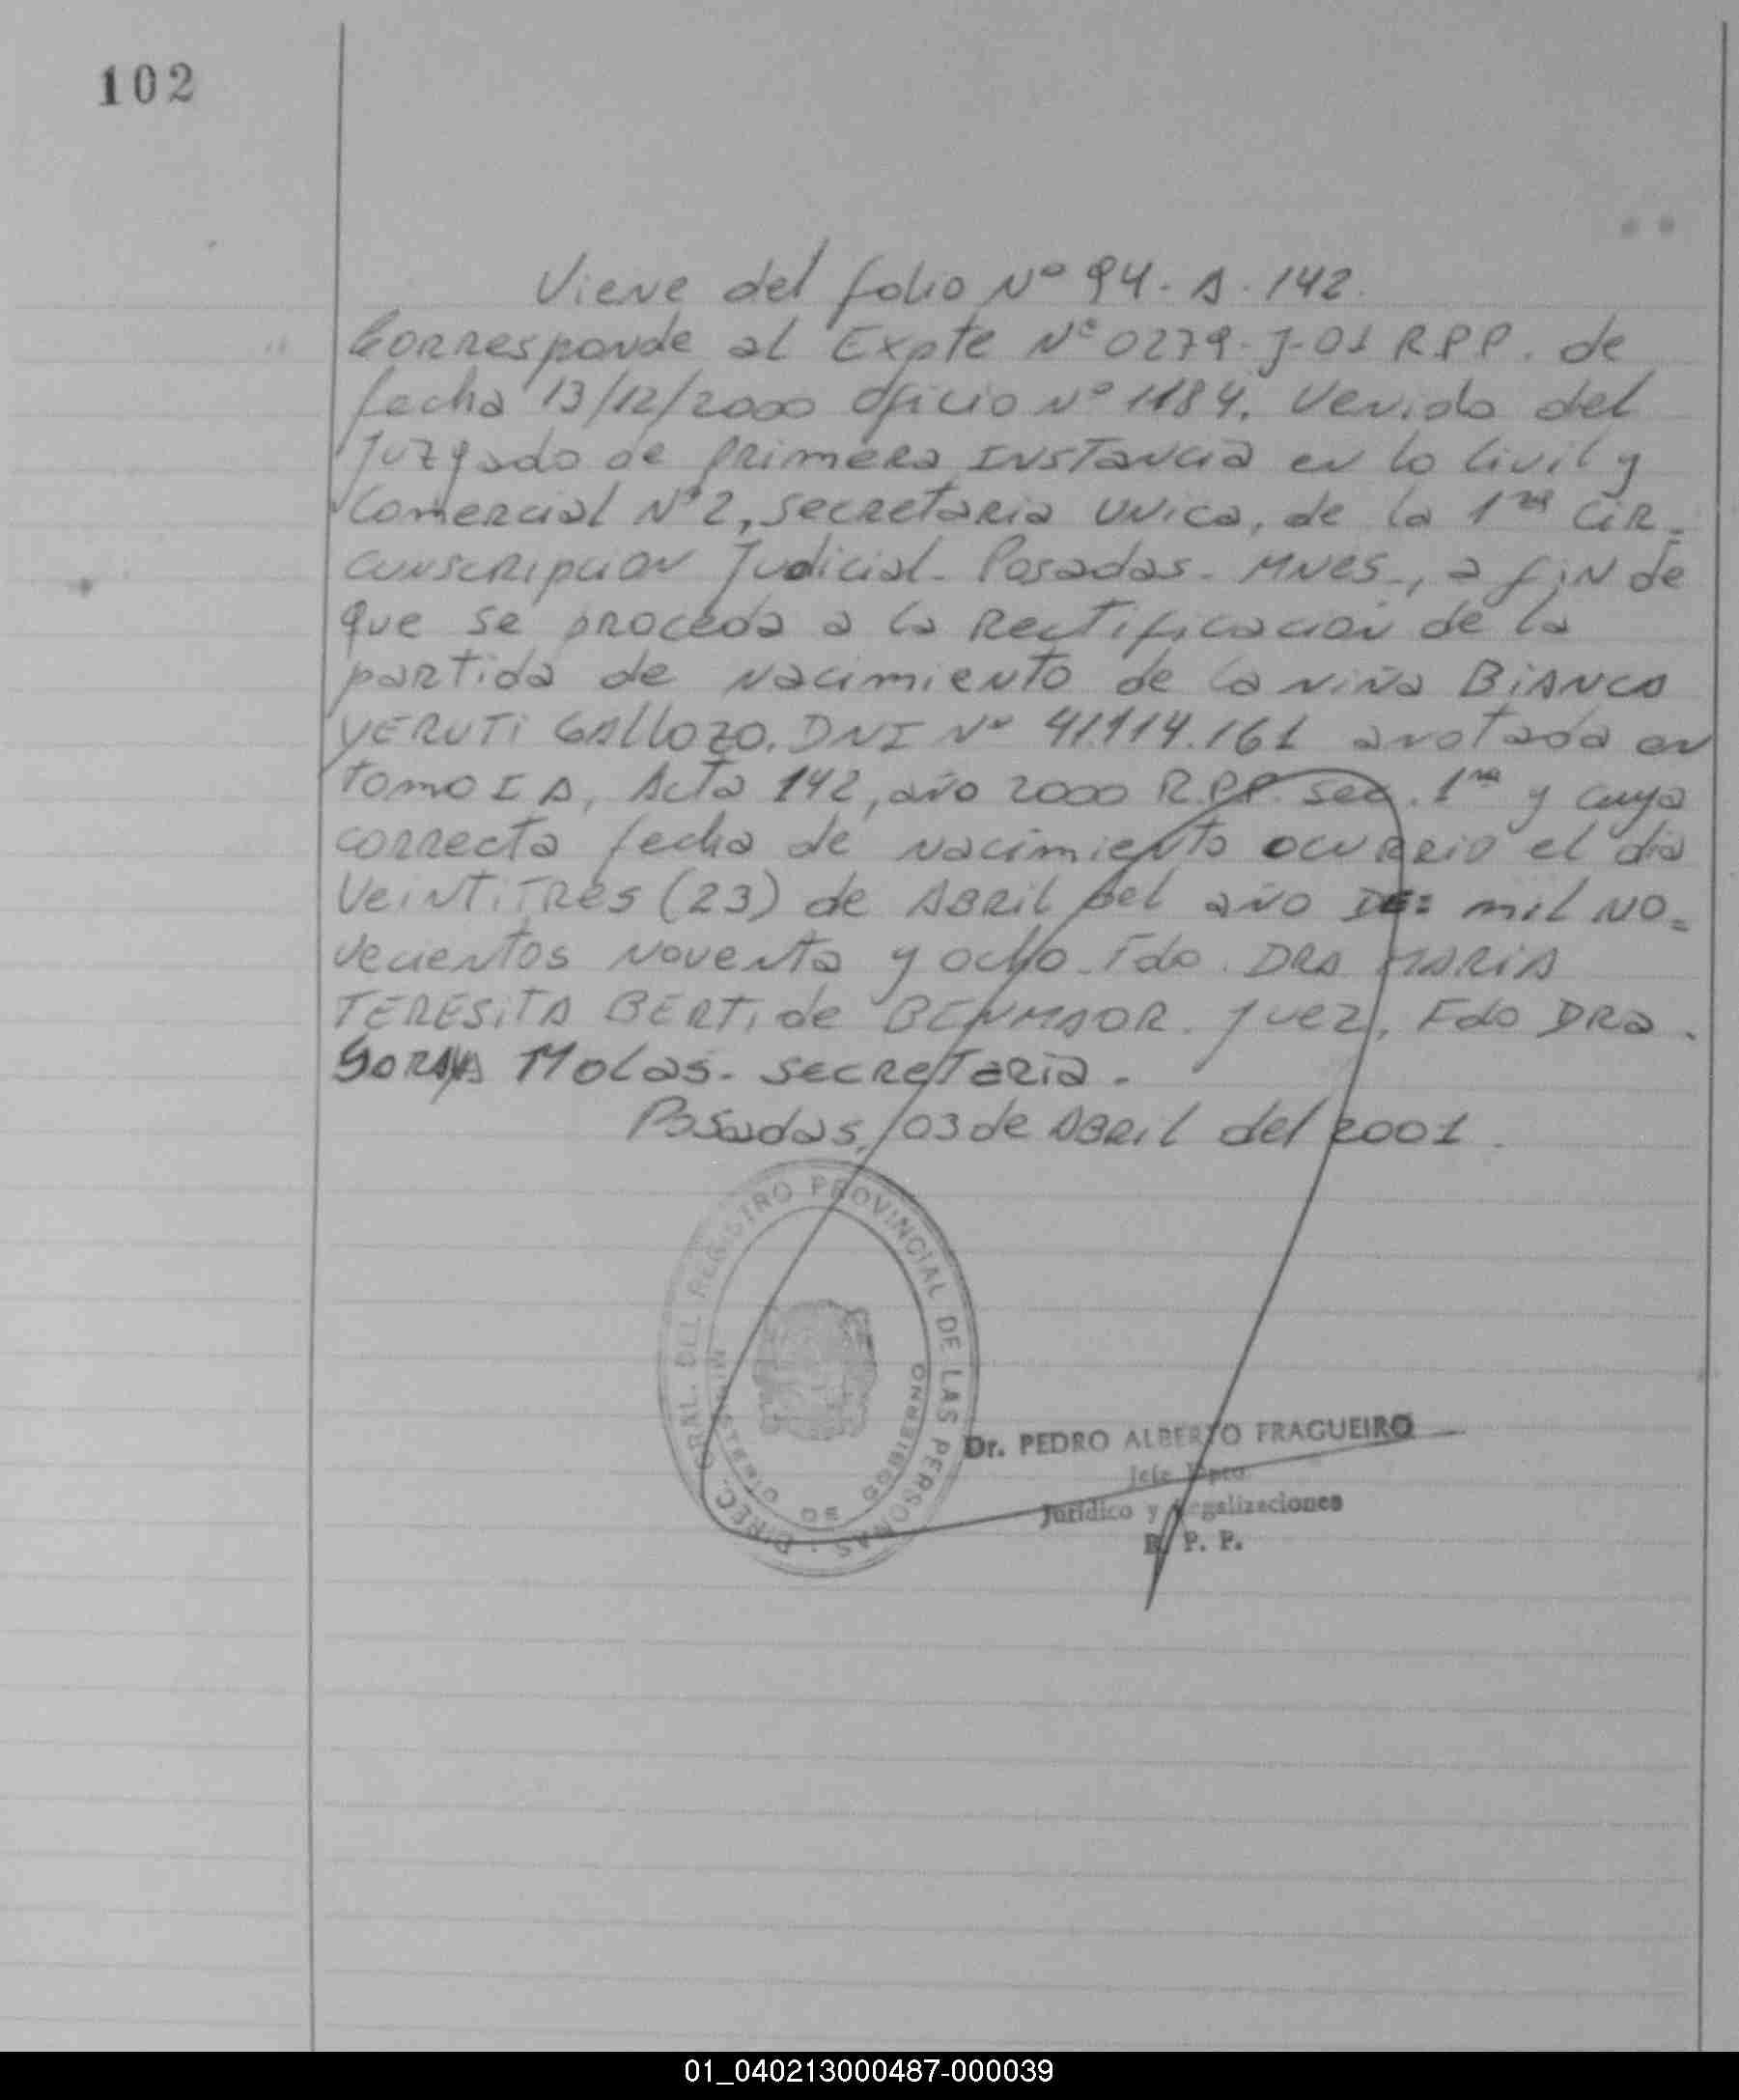 102
Viene del folio Nº 94. A. 142.
Corresponde al Expte Nº 0279-J-01 R.P.P. de
fecha 13/12/2000 Oficio Nº 1184. Venido del
Juzgado de primera Instancia en lo Civil y
Comercial Nº 2, Secretaria Unica, de la 1ra Cir_
cunscripcion Judicial. Posadas. Mnes., a fin de
que se proceda a la Rectificacion de la
partida de nacimiento de la niña BIANCA
YERUTI GALLOZO. DNI Nº 41.114.161 anotada en
Tomo I A, Acta 142, año 2000 R.P.P. Sec. 1ra y cuya
correcta fecha de nacimiento ocurrio el dia
Veintitres (23) de Abril del año DE: mil no=
vecientos noventa y ocho. Fdo. DRA MARIA
TERESITA BERTI de BENMAOR. Juez, Fdo DRa.
SORAYA Molas. Secretaria.
Posadas, 03 de Abril del 2001.
DIREC. GRAL. DEL REGISTRO PROVINCIAL DE LAS PERSONAS.
MINISTERIO DE GOBIERNO
Dr. PEDRO ALBERTO FRAGUEIRO
Jefe Dpto.
Jurídico y Legalizaciones
R. P. P.
01_040213000487-000039